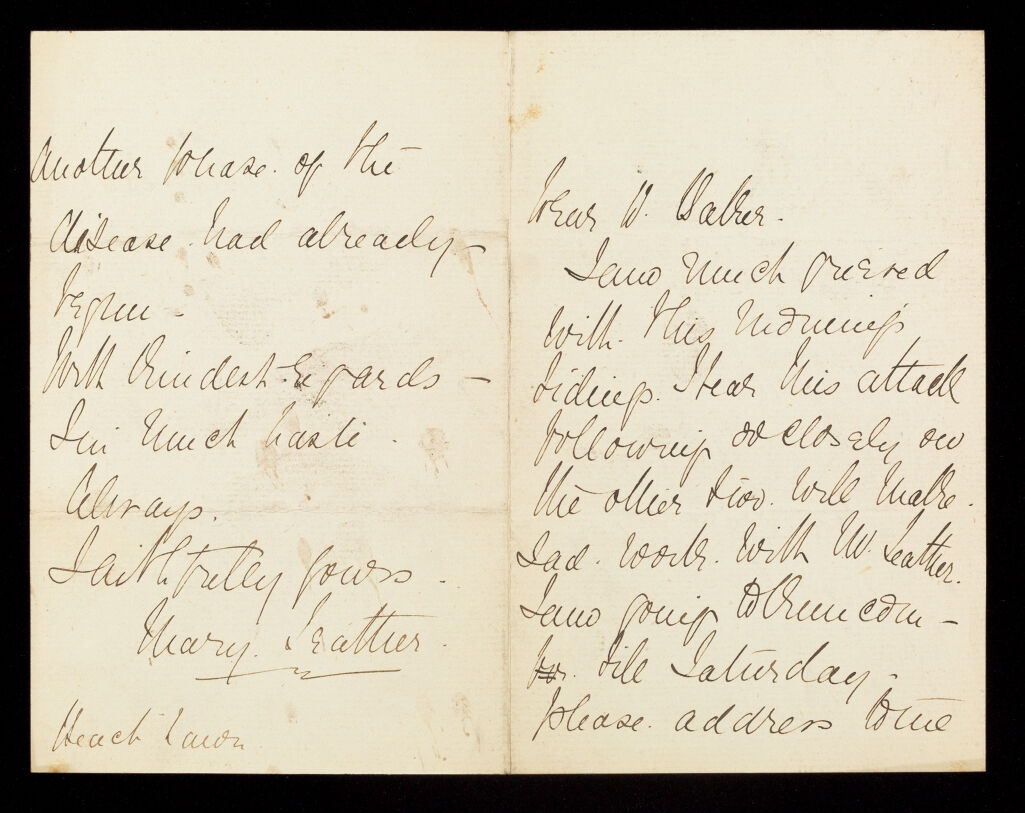 Dear D. Baker.
I am much grieved
with this morning's
tidings. I fear this attack
following so closely on
the other two. Will make
sad. work. with Mr. Leather.
I am going to
till Saturday -
please. address to me
Another phase. of the
disease. had already -
begun -
With kindest regards -
In much haste.
Always.
Faithfully yours.
Mary. Leather.
Lawn